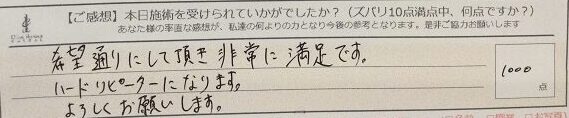 【ご感想】本日施術を受けられていかがでしたか？（ズバリ10点満点中、何点ですか？）
あなた様の率直な感想が、私達の何よりの力となり今後の参考となります。是非ご協力お願いします
希望通りにして頂き非常に満足です。
ハードリピーターになります。
よろしくお願いします。
1000
点